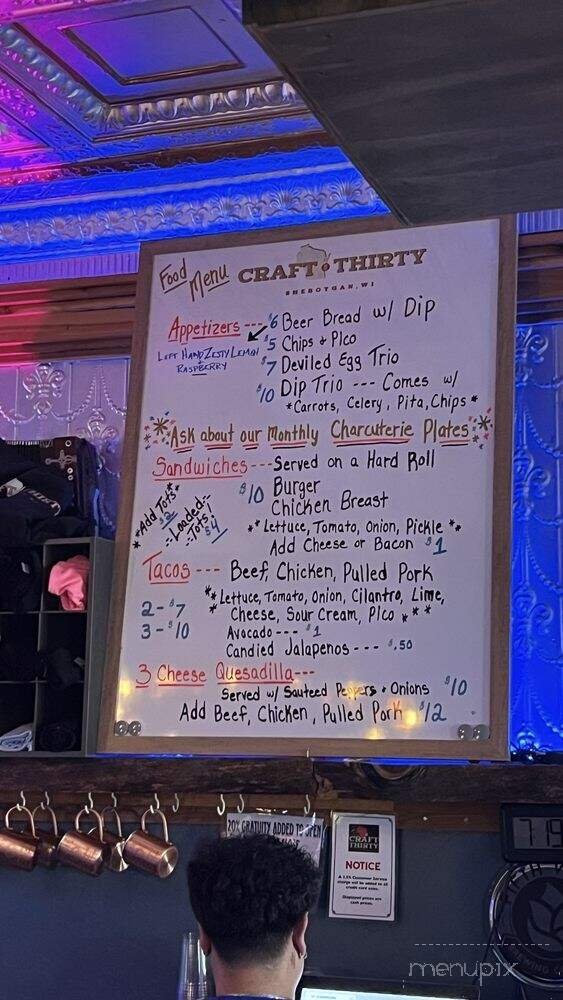 Food Menu
CRAFT THIRTY
SHEBOYGAN, WI
Appetizers --- $6 Beer Bread w/ Dip
$5 Chips + Pico
LEFT HAND ZESTY LEMON
+
RASPBERRY
$7 Deviled Egg Trio
$10 Dip Trio --- Comes w/
*Carrots, Celery, Pita, Chips*
*Ask about our Monthly Charcuterie Plates*
Sandwiches --- Served on a Hard Roll
*Add Tots* $2
Loaded Tots! $4
$10 Burger
Chicken Breast
*Lettuce, Tomato, Onion, Pickle**
Add Cheese or Bacon $1
Tacos --- Beef, Chicken, Pulled Pork
2- $7
3- $10
**Lettuce, Tomato, Onion, Cilantro, Lime,
* Cheese, Sour Cream, Pico ***
Avocado --- $1
Candied Jalapenos --- $.50
3 Cheese Quesadilla ---
Served w/ Sauteed Peppers + Onions $10
Add Beef, Chicken, Pulled Pork $12
20% GRATUITY ADDED TO OPEN
CRAFT
THIRTY
NOTICE
A 3.5% Customer Service
charge will be added to all
credit card sales.
Displayed prices are
cash prices.
menupix